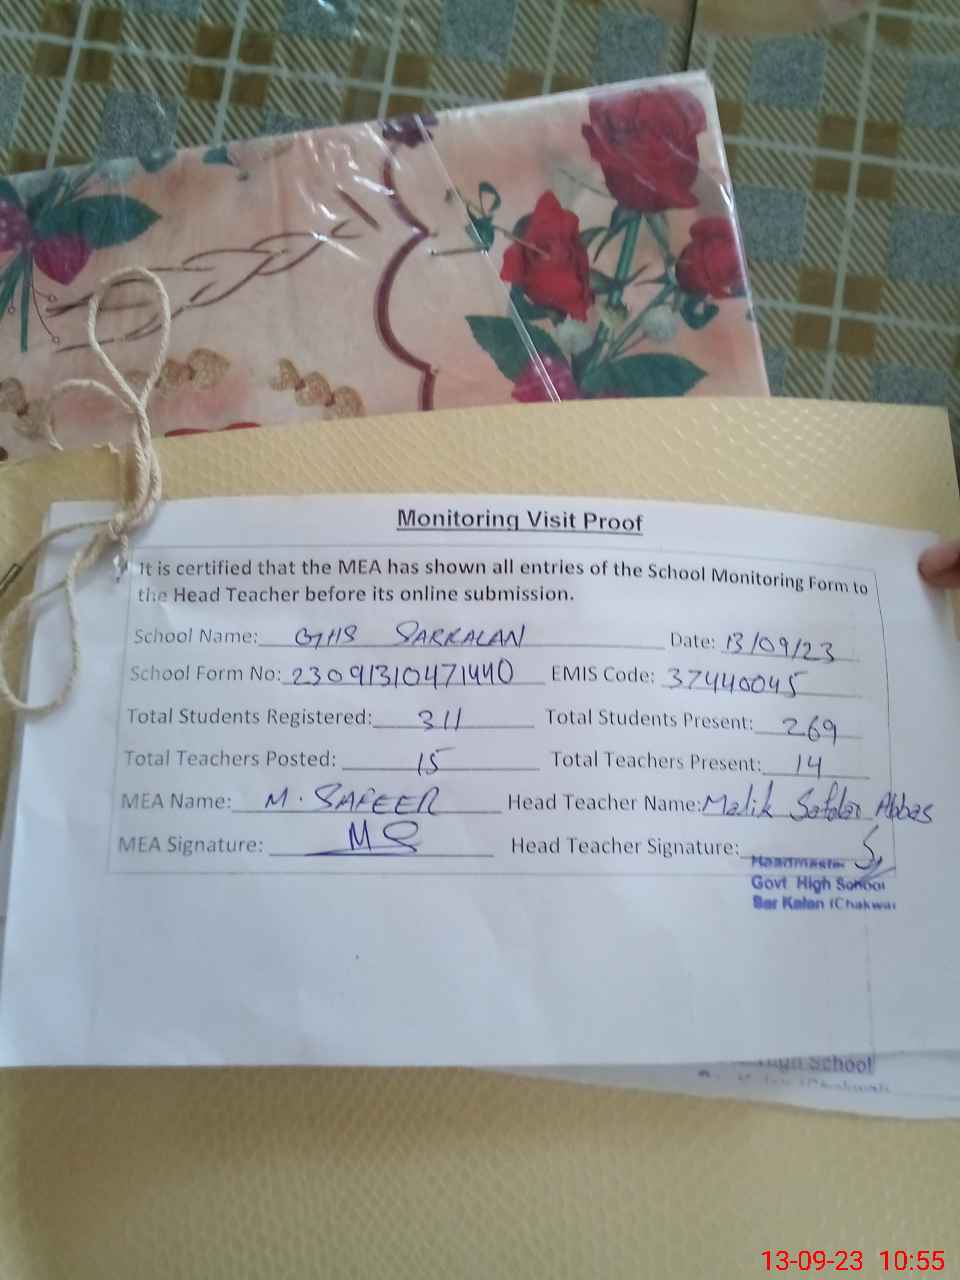 Monitoring Visit Proof
It is certified that the MEA has shown all entries of the School Monitoring Form to
the Head Teacher before its online submission.
School Name: GHS SARKALAN Date: 13/09/23
School Form No: 23091310471440 EMIS Code: 37440045
Total Students Registered: 311 Total Students Present: 269
Total Teachers Posted: 15 Total Teachers Present: 14
MEA Name: M. SAFEER Head Teacher Name: Malik Safdar Abbas
MEA Signature: MS Head Teacher Signature:
Headmaster
Govt High School
Sar Kalan (Chakwal
High School
13-09-23 10:55